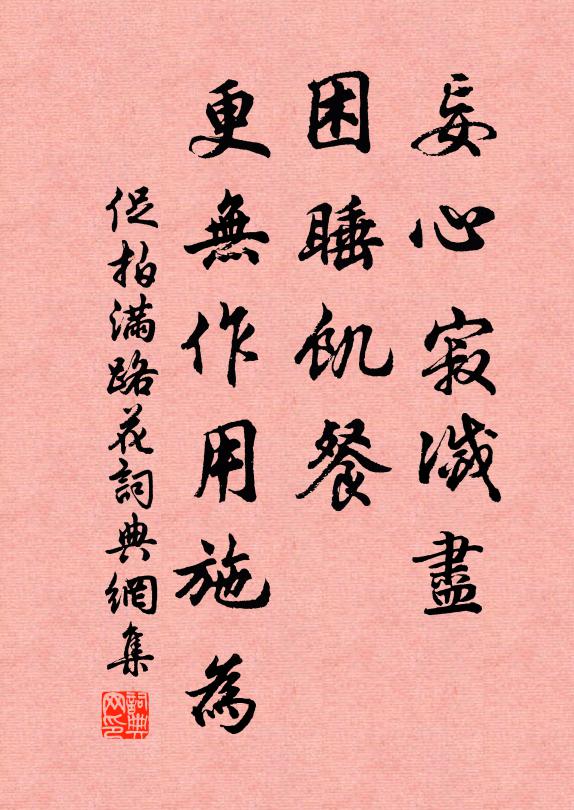 妄心寂滅盡
困睡飢餐
更無作用施為
促拍滿路花詞典網集
詞典网印